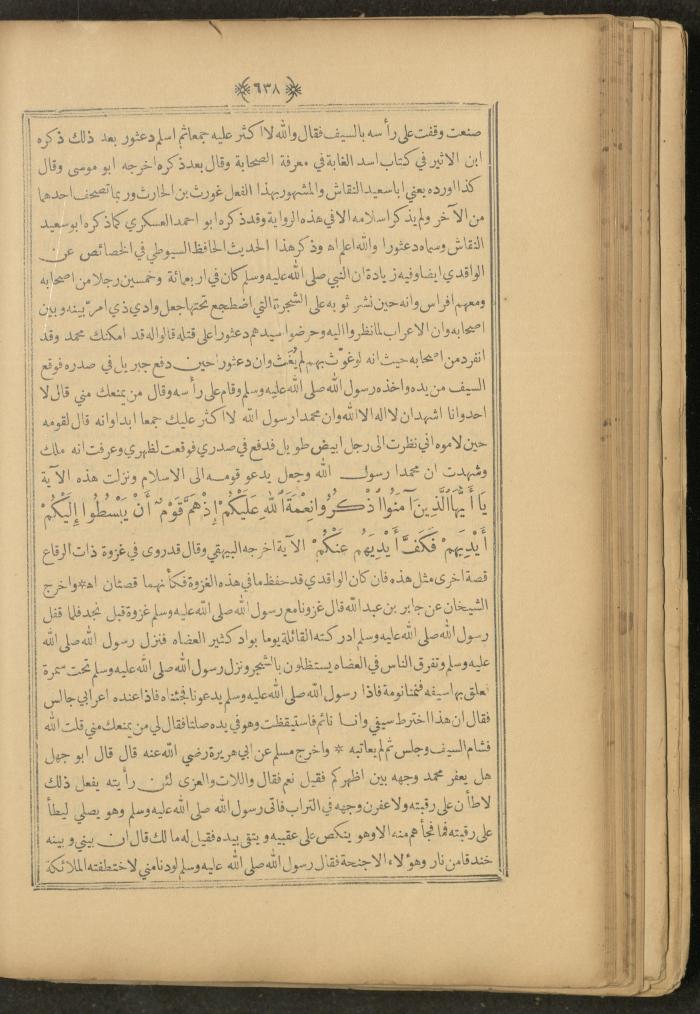 ٦٣٨
صنعت وقفت على رأسه بالسيف فقال والله لا اكثر عليه جمعا ثم اسلم دعثور بعد ذلك ذكره
ابن الاثير في كتاب اسد الغابة في معرفة الصحابة وقال بعد ذكره اخرجه ابو موسى وقال
كذا اورده يعني ابا سعيد النقاش والمشهور بهذا الفعل غورث بن الحارث وربما تصحف احدهما
من الآخر ولم يذكر اسلامه الا في هذه الرواية وقد ذكره ابو احمد العسكري كما ذكره ابو سعيد
النقاش وسماه دعثورا والله اعلم اه وذكر هذا الحديث الحافظ السيوطي في الخصائص عن
الواقدي ايضا وفيه زيادة ان النبي صلى الله عليه وسلم كان في اربعمائة وخمسين رجلا من اصحابه
ومعهم افراس وانه حين نشر ثوبه على الشجرة التي اضطجع تحتها جعل وادي ذي امرّ بينه وبين
اصحابه وان الاعراب لما نظروا اليه وحرضوا سيدهم دعثورا على قتله قالوا له قد امكنك محمد وقد
انفرد من اصحابه حيث انه لو غوّث بهم لم يُغَث وان دعثورا حين دفع جبريل في صدره فوقع
السيف من يده واخذه رسول الله صلى الله عليه وسلم وقام على رأسه وقال من يمنعك مني قال لا
احد وانا اشهد ان لا اله الا الله وان محمدا رسول الله لا اكثر عليك جمعا ابدا وانه قال لقومه
حين لاموه اني نظرت الى رجل ابيض طويل فدفع في صدري فوقعت لظهري وعرفت انه ملك
وشهدت ان محمدا رسول الله وجعل يدعو قومه الى الاسلام ونزلت هذه الآية
يَا أَيُّهَا ٱلَّذِينَ آمَنُوا ٱذْكُرُوا نِعْمَةَ ٱللهِ عَلَيْكُمْ إِذْ هَمَّ قَوْمٌ أَنْ يَبْسُطُوا إِلَيْكُمْ
أَيْدِيَهُمْ فَكَفَّ أَيْدِيَهُمْ عَنْكُمْ الآية اخرجه البيهقي وقال قد روى في غزوة ذات الرقاع
قصة اخرى مثل هذه فان كان الواقدي قد حفظ ما في هذه الغزوة فكأنهما قصتان اه * واخرج
الشيخان عن جابر بن عبد الله قال غزونا مع رسول الله صلى الله عليه وسلم غزوة قبل نجد فلما قفل
رسول الله صلى الله عليه وسلم ادركته القائلة يوما بواد كثير العضاه فنزل رسول الله صلى الله
عليه وسلم وتفرق الناس في العضاه يستظلون بالشجر ونزل رسول الله صلى الله عليه وسلم تحت سمرة
تعلق بها سيفه فنمنا نومة فاذا رسول الله صلى الله عليه وسلم يدعونا فجئناه فاذا عنده اعرابي جالس
فقال ان هذا اخترط سيفي وانا نائم فاستيقظت وهو في يده صلتا فقال لي من يمنعك مني قلت الله
فشام السيف وجلس ثم لم يعاتبه * واخرج مسلم عن ابي هريرة رضي الله عنه قال قال ابو جهل
هل يعفر محمد وجهه بين اظهركم فقيل نعم فقال واللات والعزى لئن رأيته يفعل ذلك
لاطأن على رقبته ولاعفرن وجهه في التراب فاتى رسول الله صلى الله عليه وسلم وهو يصلي ليطأ
على رقبته فما فجأهم منه الا وهو ينكص على عقبيه ويتقي بيده فقيل له مالك قال ان بيني وبينه
خندقا من نار وهؤلاء الاجنحة فقال رسول الله صلى الله عليه وسلم لو دنا مني لاختطفته الملائكة